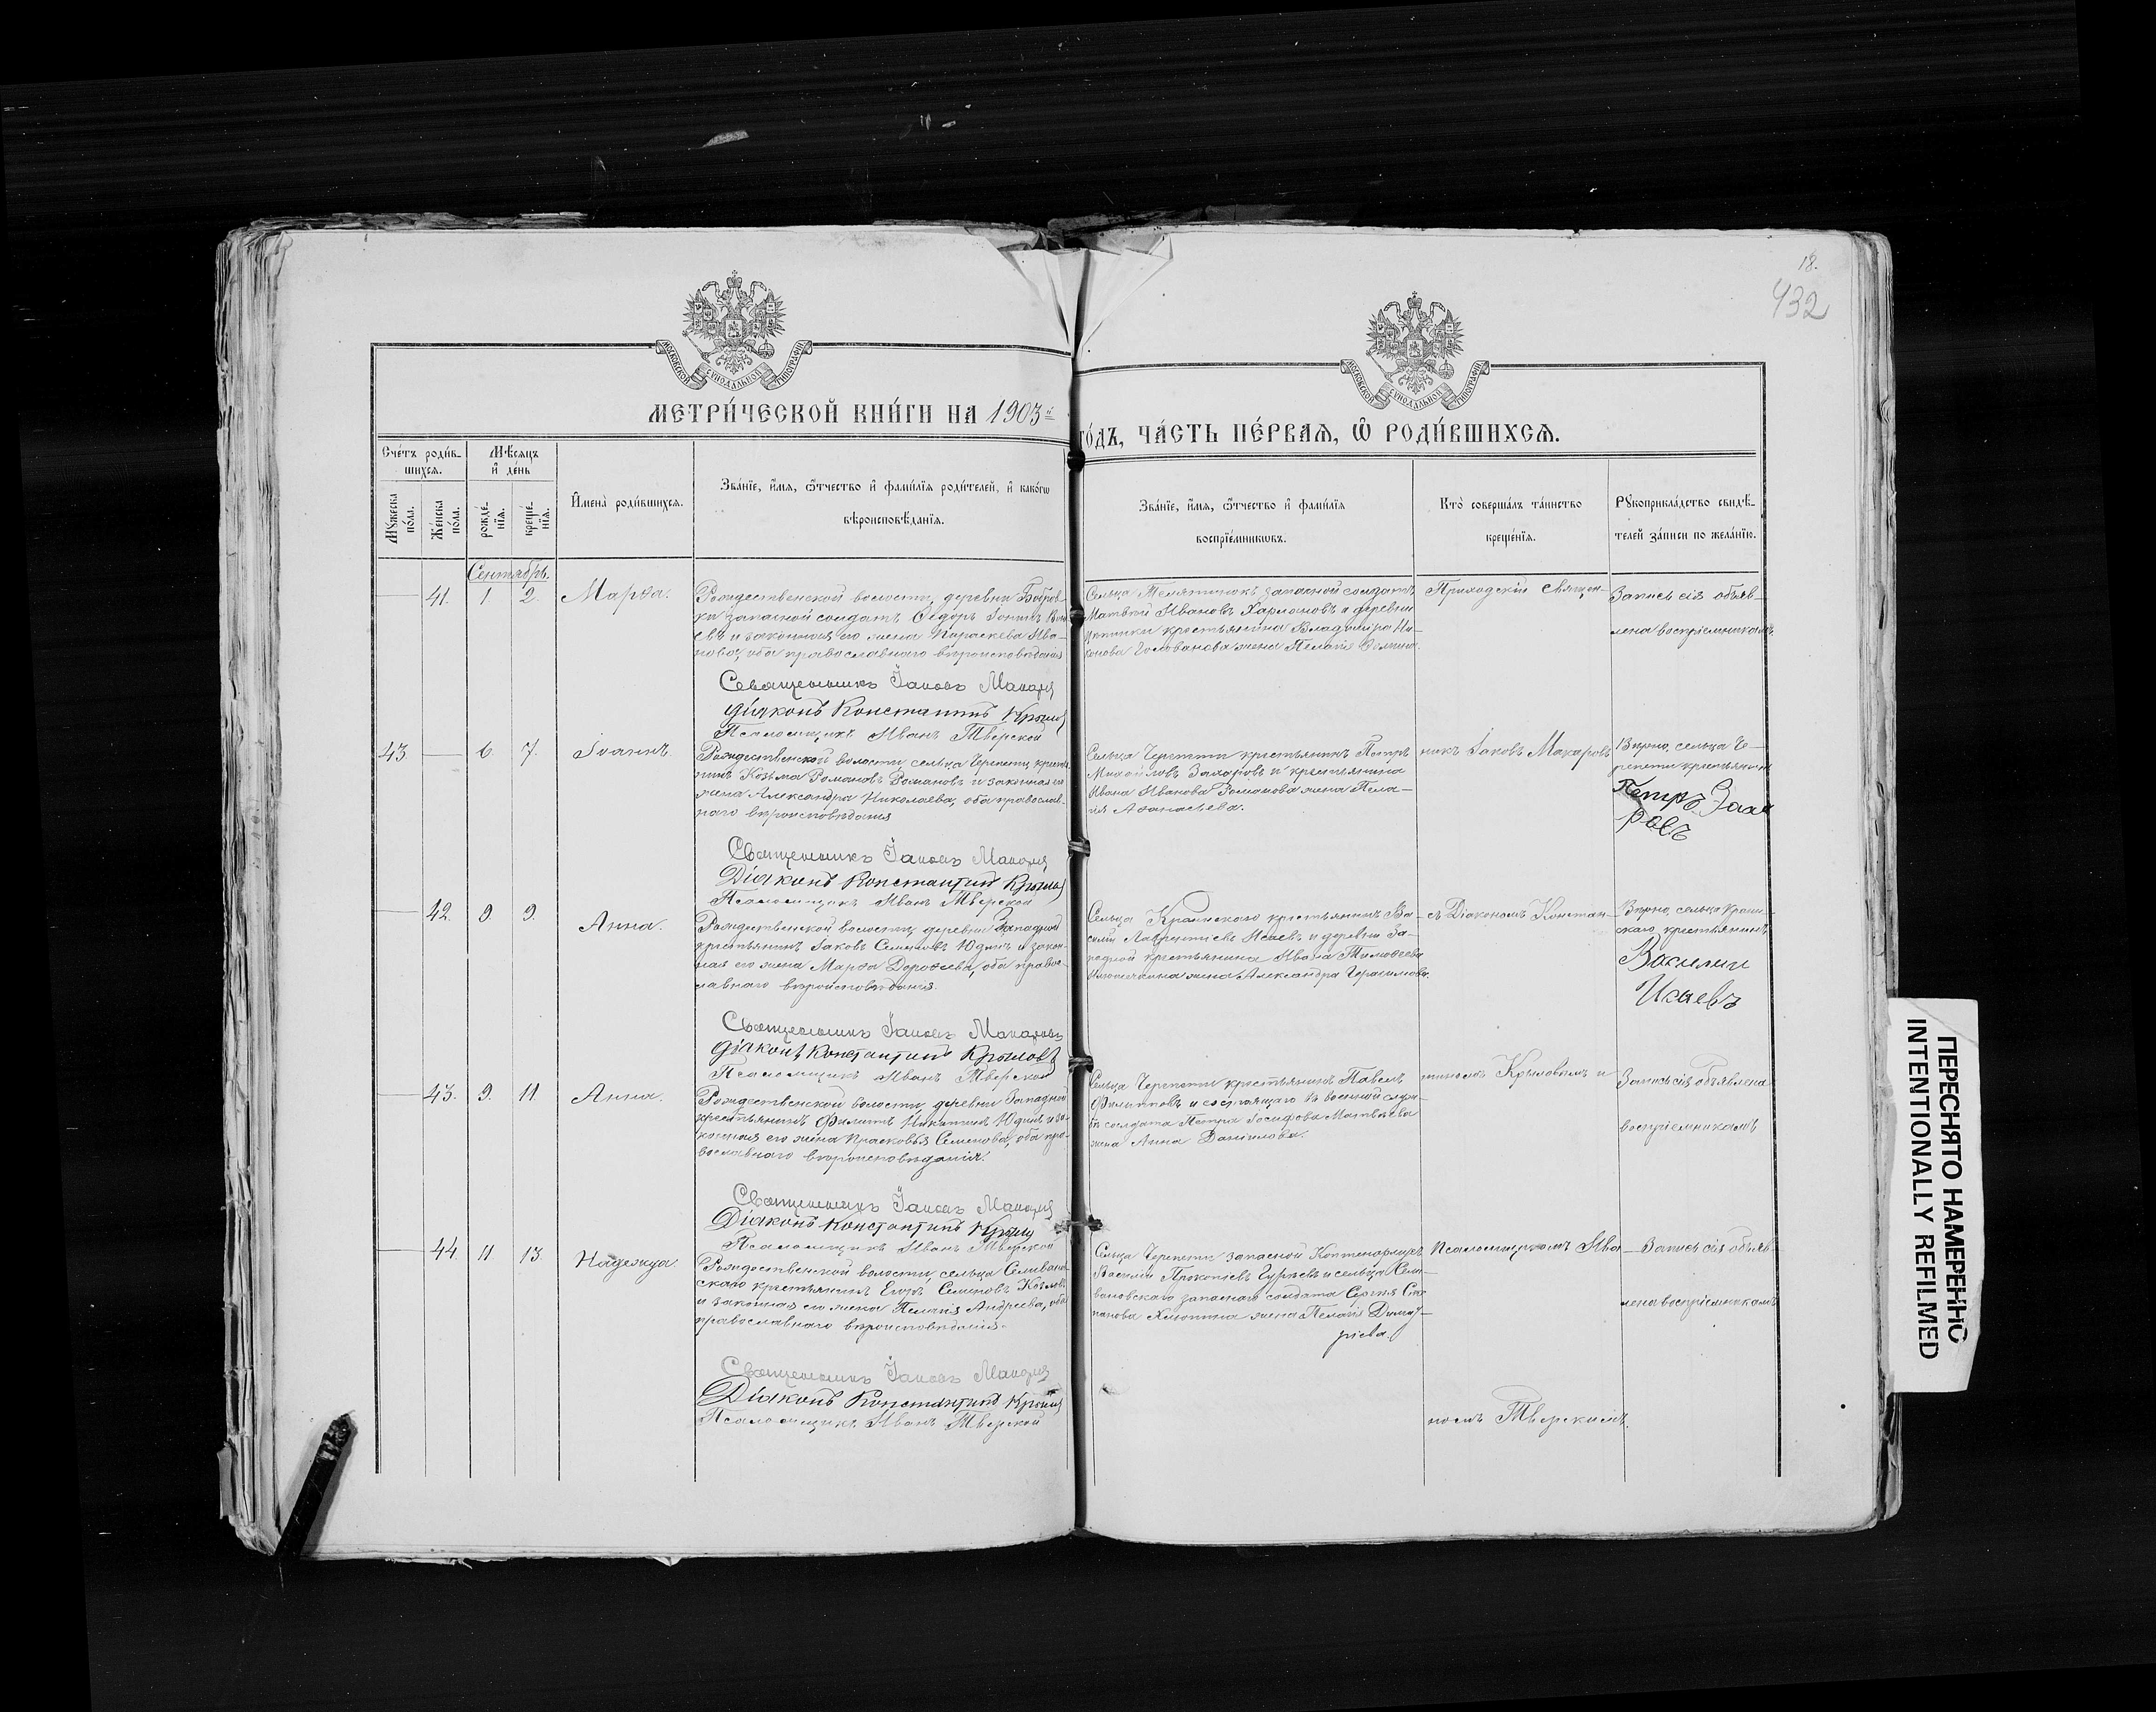 18.
432
МОСКОВСКОЙ СѴНОДАЛЬНОЙ ТИПОГРАФІИ
МОСКОВСКОЙ СѴНОДАЛЬНОЙ ТИПОГРАФІИ
МЕТРИ́ЧЕСКОЙ КНИ́ГИ НА 1903й
ГО́ДЪ, ЧА́СТЬ ПЕ́РВАѦ, Ѡ҆ РОДИ́ВШИХСѦ.
Сче́тъ роди́в-
шихсѧ.
Мѣ́сѧцъ
и҆ де́нь
Мꙋ́жеска
по́ла.
Же́нска
по́ла.
рожде́-
нїѧ.
креще́-
нїѧ.
И҆мена̀ роди́вшихсѧ.
Зва́нїе, и҆́мѧ, ѻ҆́тчество и҆ фами́лїѧ роди́телей, и҆ како́гѡ
вѣроисповѣ́данїѧ.
Зва́нїе, и҆́мѧ, ѻ҆́тчество и҆ фами́лїѧ
воспрїе́мникѡвъ.
Кто̀ соверша́лъ та́инство
креще́нїѧ.
Рꙋкоприкла́дство свидѣ́-
телей за́писи по жела́нїю.
Сентябрь.
41. 1 2. Марѳа.
Рождественской волости, деревни Бобров-
ки запасной солдатъ Ѳедоръ
и законная его жена Параскева Ива-
нова, оба православнаго вѣроисповѣданія
Священникъ Іаковъ Макаров
Діаконъ Константинъ Крылов
Псаломщикъ Иванъ Тверской
Сельца Телятинокъ запасной солдатъ
Матвѣй Ивановъ Харламовъ и деревни
крестьянина Владиміра Ни-
конова Голованова жена Пелагія
Приходскій Священ-
Запись сія объяв-
лена воспріемникамъ.
43. 6. 7. Іоаннъ.
Рождественской волости, сельца Черепети, крестья
нинъ Козьма Романовъ Романовъ и законная его
жена Александра Николаева, оба православ-
наго вѣроисповѣданія
Священникъ Іаковъ Макаров
Діаконъ Константинъ Крылов
Псаломщикъ Иванъ Тверской
Сельца Черепети крестьянинъ Петръ
Михайловъ Захаровъ и крестьянина
Ивана Иванова Романова жена Пела-
гія Аѳанасьева.
никъ Іаковъ Макаровъ
Вѣрно, сельца Че-
репети крестьянинъ
Петръ Заха
ровъ
42. 9. 9. Анна.
Рождественской волости, деревни Западной
крестьянинъ Іаковъ Семеновъ Юдинъ и закон-
ная его жена Марѳа Дороѳеева, оба право-
славнаго вѣроисповѣданія.
Священникъ Іаковъ Макаровъ
Діаконъ Константинъ Крыловъ
Псаломщикъ Иванъ Тверской
Сельца Краинскаго крестьянинъ Ва-
силій Лаврентіевъ Исаевъ и деревни За-
падной крестьянина Ивана Тимоѳеева
жена Александра Герасимова.
съ Діакономъ Констан-
Вѣрно, сельца Краин-
скаго, крестьянинъ
Василий
Исаевъ
43. 9. 11. Анна.
Рождественской волости, деревни Западной
крестьянинъ Филиппъ Никитинъ Юдинъ и за-
конная его жена Прасковья Семенова, оба пра-
вославнаго вѣроисповѣданія.
Священникъ Іаковъ Макаров
Діаконъ Константинъ Крылов
Псаломщикъ Иванъ Тверской
Сельца Черепети крестьянинъ Павелъ
Филипповъ и состоящаго въ военной служ-
бѣ солдата Петра Іосифова Матвѣева
жена Анна Данилова.
тиномъ Крыловымъ и
Запись сія объявлена
воспріемникамъ
44. 11. 13. Надежда.
Рождественской волости, сельца Селиванов
скаго крестьянинъ Егоръ Семеновъ Козловъ
и законная его жена Пелагія Андреева, оба
православнаго вѣроисповѣданія.
Священникъ Іаковъ Макаров
Діаконъ Константинъ Крылов
Псаломщикъ Иванъ Тверской
Сельца Черепети запасной Каптенармусъ
Василій Прокопіевъ Гурьевъ и сельца Сели-
вановскаго запаснаго солдата Сергѣя Сте
панова Хлюпина жена Пелагія Димит-
ріева.
Псаломщикомъ Ива-
номъ Тверскимъ.
Запись сія объяв-
лена воспріемникамъ
ПЕРЕСНЯТО НАМЕРЕННО
INTENTIONALLY REFILMED